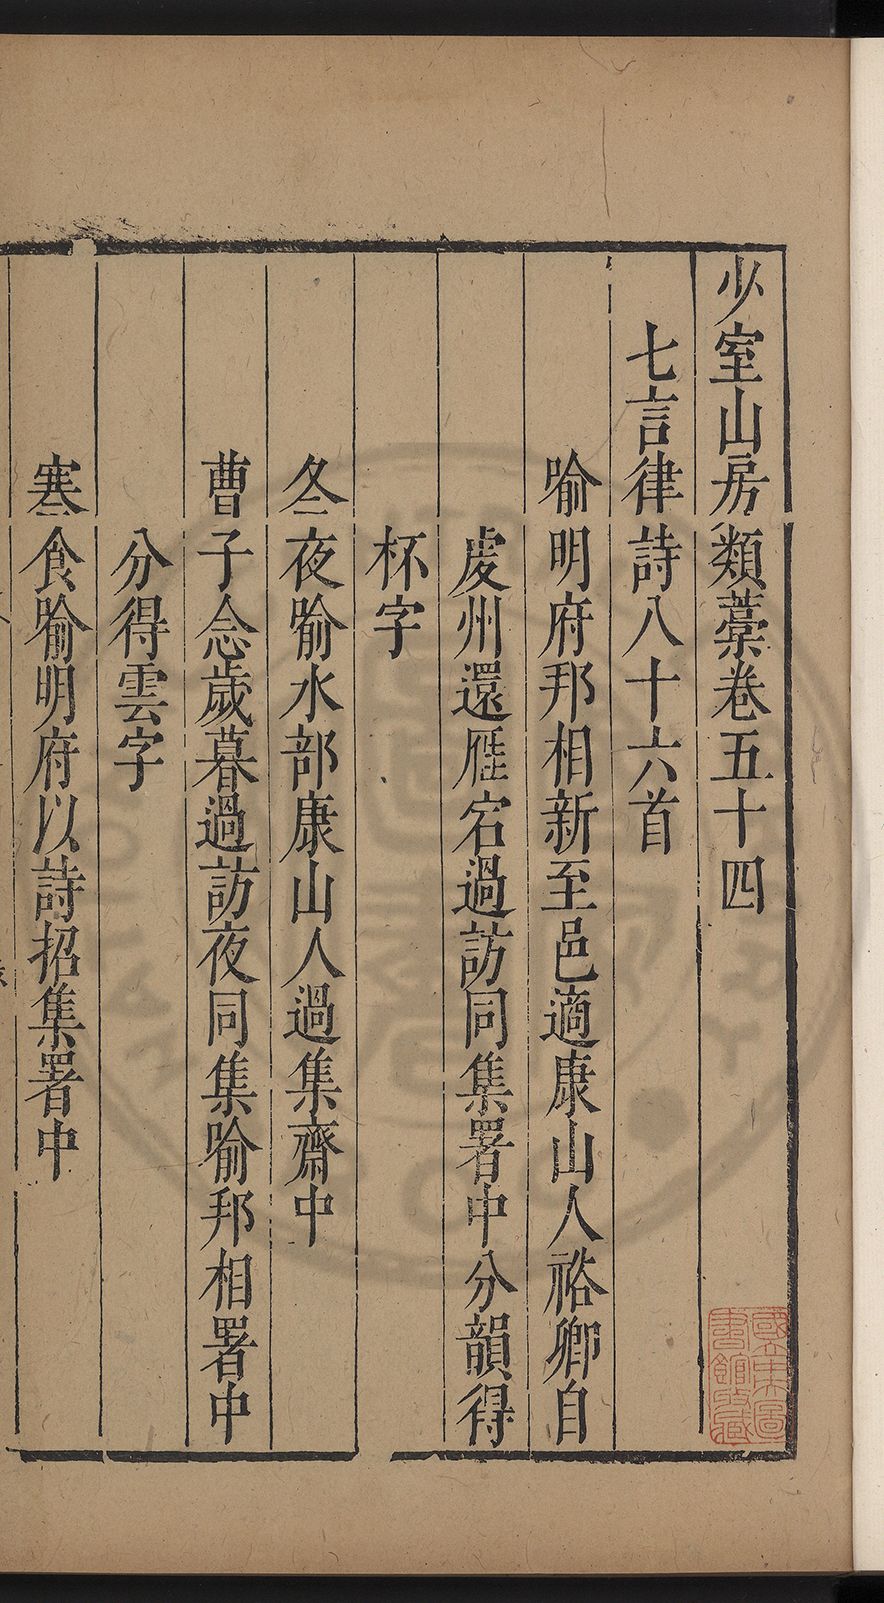 少室山房類藁卷五十四
七言律詩八十六首
喻明府邦相新至邑適康山人裕卿自
處州還雁宕過訪同集署中分韻得
杯字
冬夜喻水部康山人過集齋中
曹子念歲暮過訪夜同集喻邦相署中
分得雲字
寒食喻明府以詩招集署中
國立中央圖
書館收藏